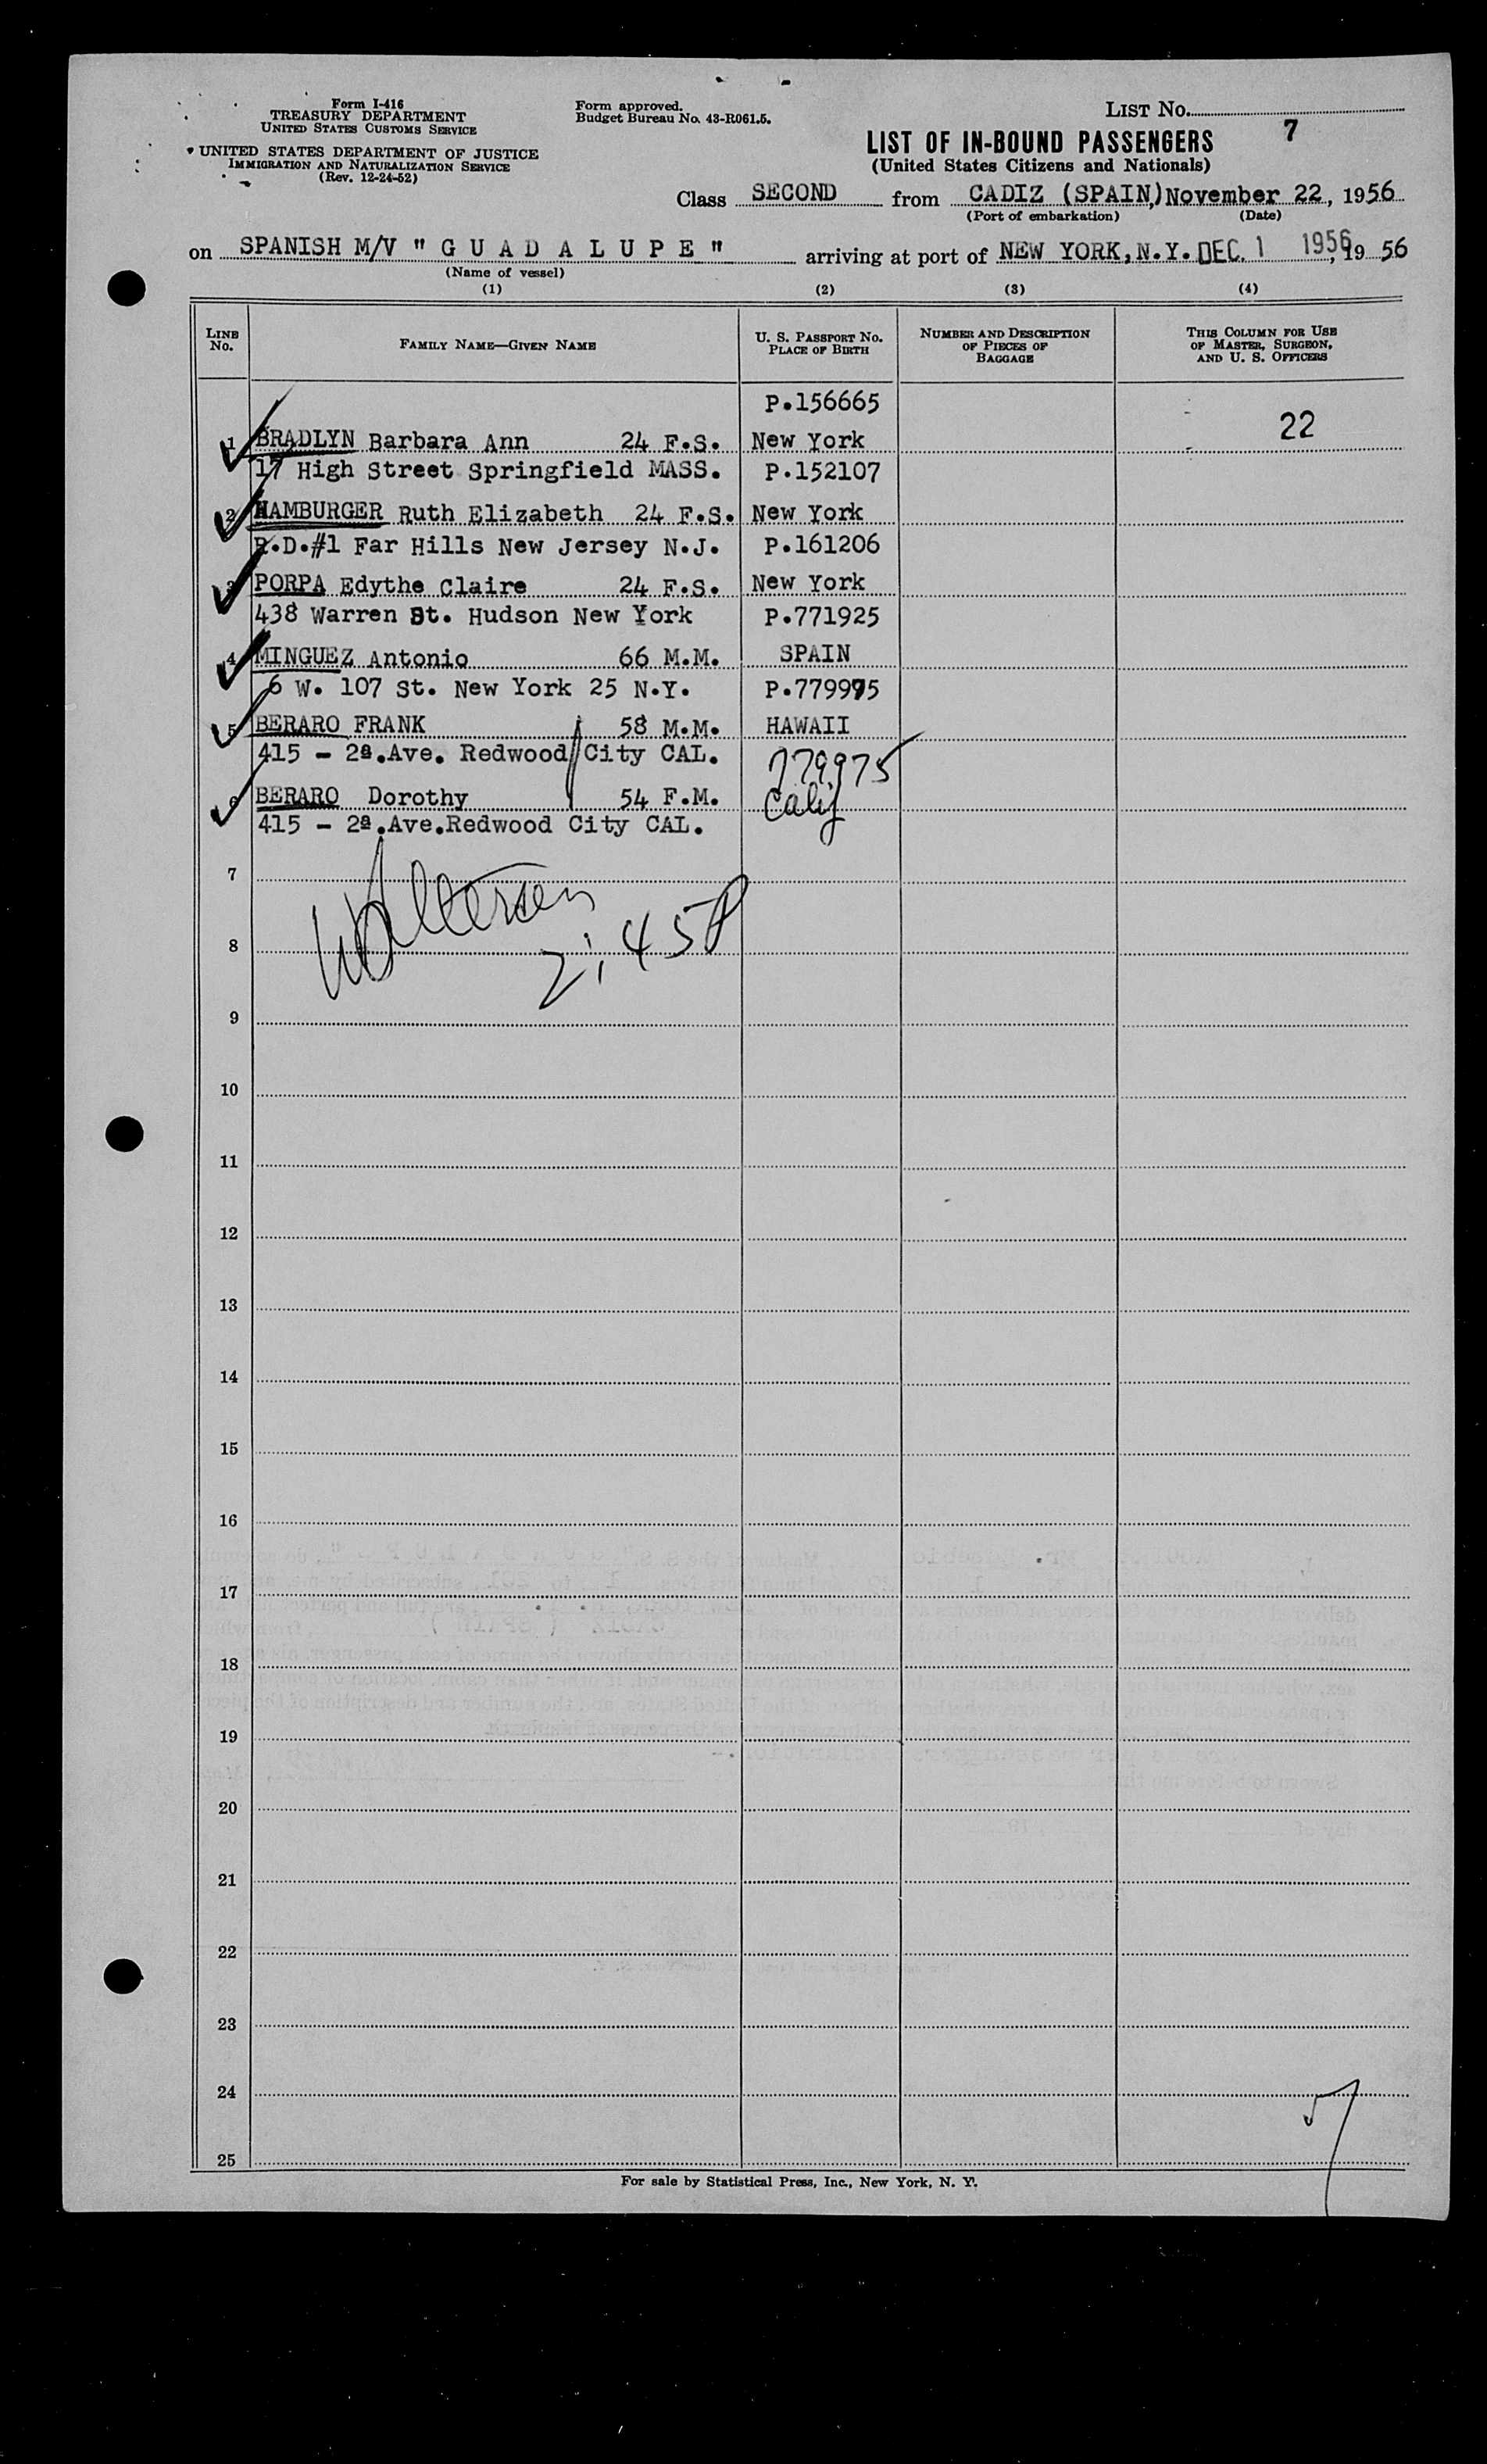 Form I-416
TREASURY DEPARTMENT
UNITED STATES CUSTOMS SERVICE
UNITED STATES DEPARTMENT OF JUSTICE
IMMIGRATION AND NATURALIZATION SERVICE
(Rev. 12-24-52)
Form approved.
Budget Bureau No. 43-R061.5.
LIST No.
7
LIST OF IN-BOUND PASSENGERS
(United States Citizens and Nationals)
Class SECOND from CADIZ (SPAIN,) November 22, 1956
(Port of embarkation) (Date)
on SPANISH M/V " G U A D A L U P E " arriving at port of NEW YORK, N.Y. DEC. 1 1956, 19 56
(Name of vessel)
(1) (2) (3) (4)
LINE No. FAMILY NAME—GIVEN NAME U. S. PASSPORT No. PLACE OF BIRTH NUMBER AND DESCRIPTION OF PIECES OF BAGGAGE THIS COLUMN FOR USE OF MASTER, SURGEON, AND U. S. OFFICERS
P.156665
1 BRADLYN Barbara Ann 24 F.S. New York 22
17 High Street Springfield MASS. P.152107
2 HAMBURGER Ruth Elizabeth 24 F.S. New York
R.D.#1 Far Hills New Jersey N.J. P.161206
3 PORPA Edythe Claire 24 F.S. New York
438 Warren St. Hudson New York P.771925
4 MINGUEZ Antonio 66 M.M. SPAIN
6 W. 107 St. New York 25 N.Y. P.779975
5 BERARO FRANK 58 M.M. HAWAII
415 - 2a.Ave. Redwood City CAL. 779975
6 BERARO Dorothy 54 F.M. Calif
415 - 2a.Ave.Redwood City CAL.
7
8
2;45P
9
10
11
12
13
14
15
16
17
18
19
20
21
22
23
24
25
For sale by Statistical Press, Inc., New York, N. Y.